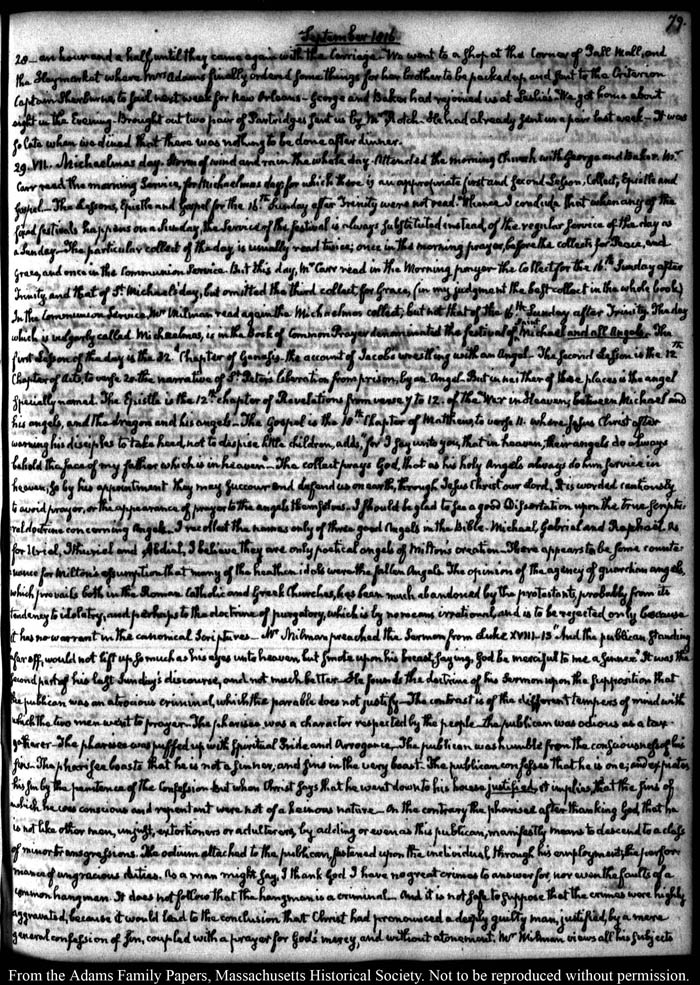 79.
September 1816.
28 — an hour and a half, until they came again with the Carriage. We went to a Shop at the Corner of Pall Mall, and
the Haymarket where Mrs. Adams finally ordered some things for her brother to be packed up, and sent to the Criterion
Captain Sherburne, to sail next week for New Orleans — George and Baker had rejoined us at Leslie's. We got home about
eight in the Evening. Brought out two pair of Partridges sent us by Mr. Rotch. He had already sent us a pair last week — It was
so late when we dined that there was nothing to be done after dinner.
29. VII. Michaelmas day. Storm of wind and rain the whole day. Attended the morning Church with George and Baker. Mr.
Carr read the morning Service, for Michaelmas day, for which there is an appropriate first and second Lesson, Collect, Epistle and
Gospel — The Lessons, Epistle and Gospel for the 16th Sunday after Trinity were not read. Whence I conclude that when any of the
festivals happens on a Sunday, the Service of the festival is always substituted instead, of the regular Service of the day as
a Sunday — The particular collect of the day is usually read twice; once in the morning prayer, before the collects for Peace, and
Grace, and once in the Communion Service. But this day, Mr. Carr read in the Morning prayer the Collect for the 16th Sunday after
Trinity, and that of St. Michael's day, but omitted the third collect, for Grace, (in my judgment the best collect in the whole book)
In the Communion Service, Mr. Milman read again the Michaelmas collect; but not that of the 16th Sunday after Trinity. The day
which is vulgarly called Michaelmas, is in the Book of Common Prayer denominated the festival of St. Michael and all Angels. The
first Lesson of the day is the 32. Chapter of Genesis, the account of Jacobs wrestling with an Angel. The second Lesson is the 12th
Chapter of Acts, to verse 20. the narrative of St. Peter's liberation from prison, by an Angel. But in neither of these places is the angel
specially named. The Epistle is the 12th chapter of Revelations from verse 7 to 12. of the War in Heaven, between Michael and
his angels, and the dragon and his angels — The Gospel is the 18th Chapter of Matthew, to verse 11. where Jesus Christ after
warning his disciples to take heed, not to despise little children, adds, for I say unto you, that in heaven, their angels do always
behold the face of my father which is in heaven" — The collect prays God, that as his holy Angels always do him service in
heaven, so by his appointment they may succour and defend us on earth, through Jesus Christ our Lord. It is worded cautiously
to avoid prayer, or the appearance of prayer to the angels themselves. I should be glad to see a good Dissertation upon the true Scriptu-
ral doctrine concerning Angels. I recollect the names only of three good Angels in the Bible — Michael, Gabriel and Raphael. As
for Uriel, Ithuriel and Abdiel, I believe they are only poetical angels of Milton's creation — There appears to be some counte-
nance for Milton's assumption that many of the heathen idols were the fallen Angels. The opinion of the agency of guardian angels,
which prevails both in the Roman Catholic and Greek Churches, has been much abandoned by the protestants, probably from its
tendency to idolatry, and perhaps to the doctrine of purgatory, which is by no means irrational, and is to be rejected only because
it has no warrant in the canonical Scriptures — Mr. Milman preached the Sermon from Luke XVIII. 13 "And the publican standing
afar off, would not lift up so much as his eyes unto heaven, but smote upon his breast, saying, God be merciful to me a sinner." It was the
second part of his last Sunday's discourse, and not much better — He founds the doctrine of his Sermon upon the supposition that
the publican was an atrocious criminal, which the parable does not justify — The contrast is of the different tempers of mind with
which the two men went to prayer — The pharisee was a character respected by the people — the publican was odious as a tax
gatherer — The pharisee was puffed up with Spiritual Pride and Arrogance — The publican was humble from the consciousness of his
sins. The pharisee boasts that he is not a sinner, and sins in the very boast. The publican confesses that he is one; and expiates
his sin by the penitence of the Confession. But when Christ says that he went down to his house justified, it implies, that the sins of
which he was conscious and repentant were not of a heinous nature — On the contrary the pharisee after thanking God, that he
is not like other men, unjust, extortioners or adulterers, by adding or even as this publican, manifestly means to descend to a class
of minor transgressions. The odium attached to the publican, fastened upon the individual through his employment, the perfor-
mance of ungracious duties. As a man might say, I thank God I have no great crimes to answer for nor even the faults of a
common hangman. It does not follow that the hangman is a criminal — And it is not safe to suppose that the crimes were highly
aggravated, because it would lead to the conclusion that Christ had pronounced a deeply guilty man, justified, by a mere
general confession of sin, coupled with a prayer for God's mercy, and without atonement. Mr. Milman views all his subjects
From the Adams Family Papers, Massachusetts Historical Society. Not to be reproduced without permission.